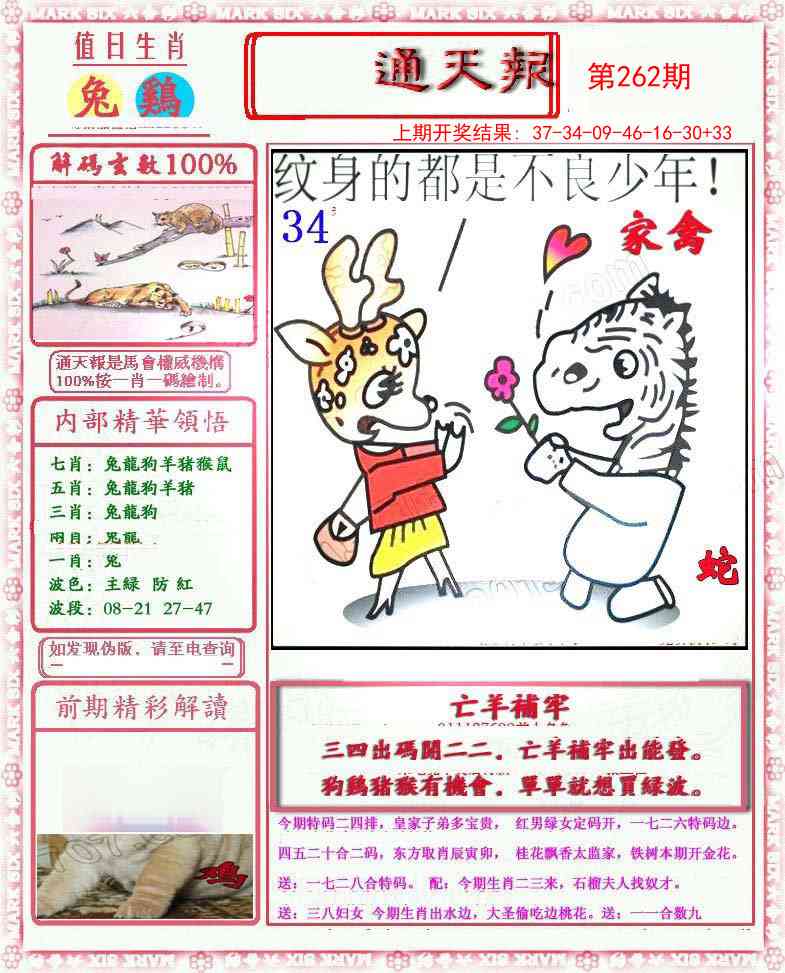 MARK SIX 六合彩 MARK SIX 六合彩 MARK SIX 六合彩 MARK SIX 六合彩
值日生肖
兔 鷄
通天報
第262期
上期开奖结果: 37-34-09-46-16-30+33
解碼玄數100%
通天報是馬會權威機構
100%按一肖一碼繪制。
内部精華領悟
七肖: 兔龍狗羊猪猴鼠
五肖: 兔龍狗羊猪
三肖: 兔龍狗
兩肖: 兔龍
一肖: 兔
波色: 主緑 防 紅
波段: 08-21 27-47
如发现伪版、请至电查询
前期精彩解讀
纹身的都是不良少年!
34
家禽
蛇
亡羊補牢
三四出碼開二二。亡羊補牢出能發。
狗鷄猪猴有機會。單單就想買緑波。
今期特码二四排，皇家子弟多宝贵， 红男绿女定码开，一七二六特码边。
四五二十合二码，东方取肖辰寅卯， 桂花飘香太监家，铁树本期开金花。
送：一七二八合特码。 配：今期生肖二三来，石榴夫人找奴才。
送：三八妇女 今期生肖出水边，大圣偷吃边桃花。送：一一合数九